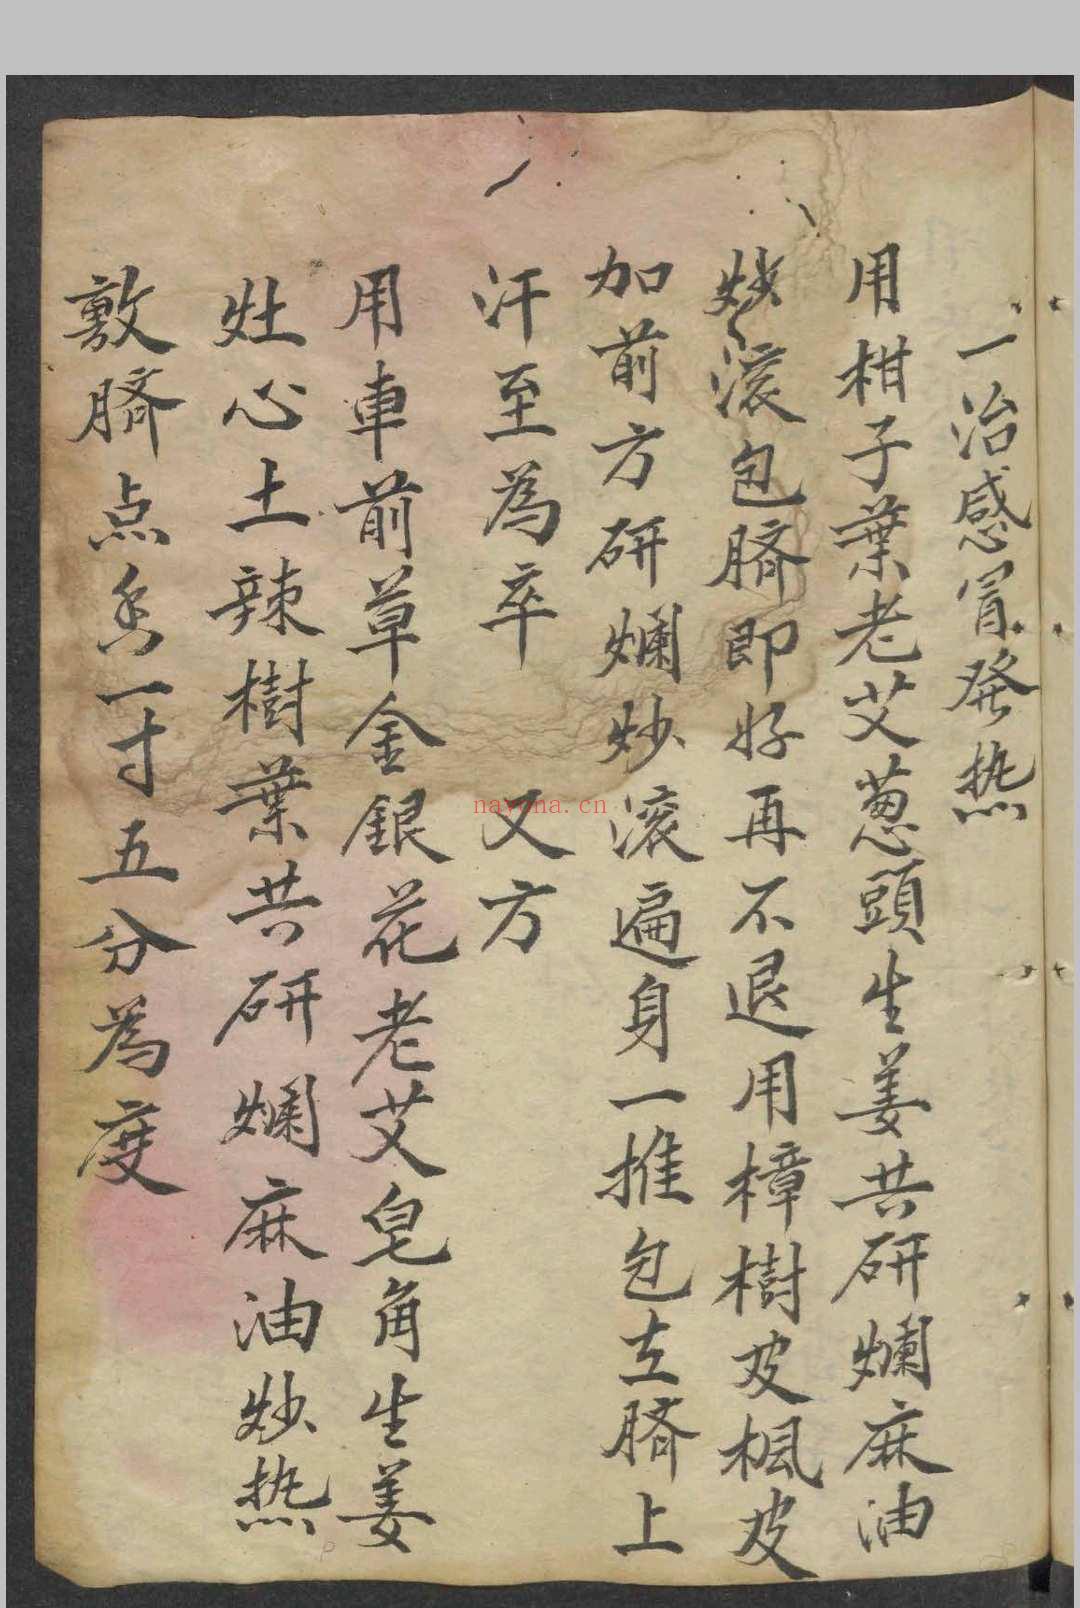 一治感冒發热
用柑子葉老艾葱頭生姜共研爛麻油
炒滚包臍即好再不退用樟樹皮楓皮
加前方研爛炒滚遍身一推包在臍上
汗至為卒　又方
用車前草金銀花老艾皂角生姜
灶心土辣樹葉共研爛麻油炒热
敷臍点香一寸五分為度
nayona.cn